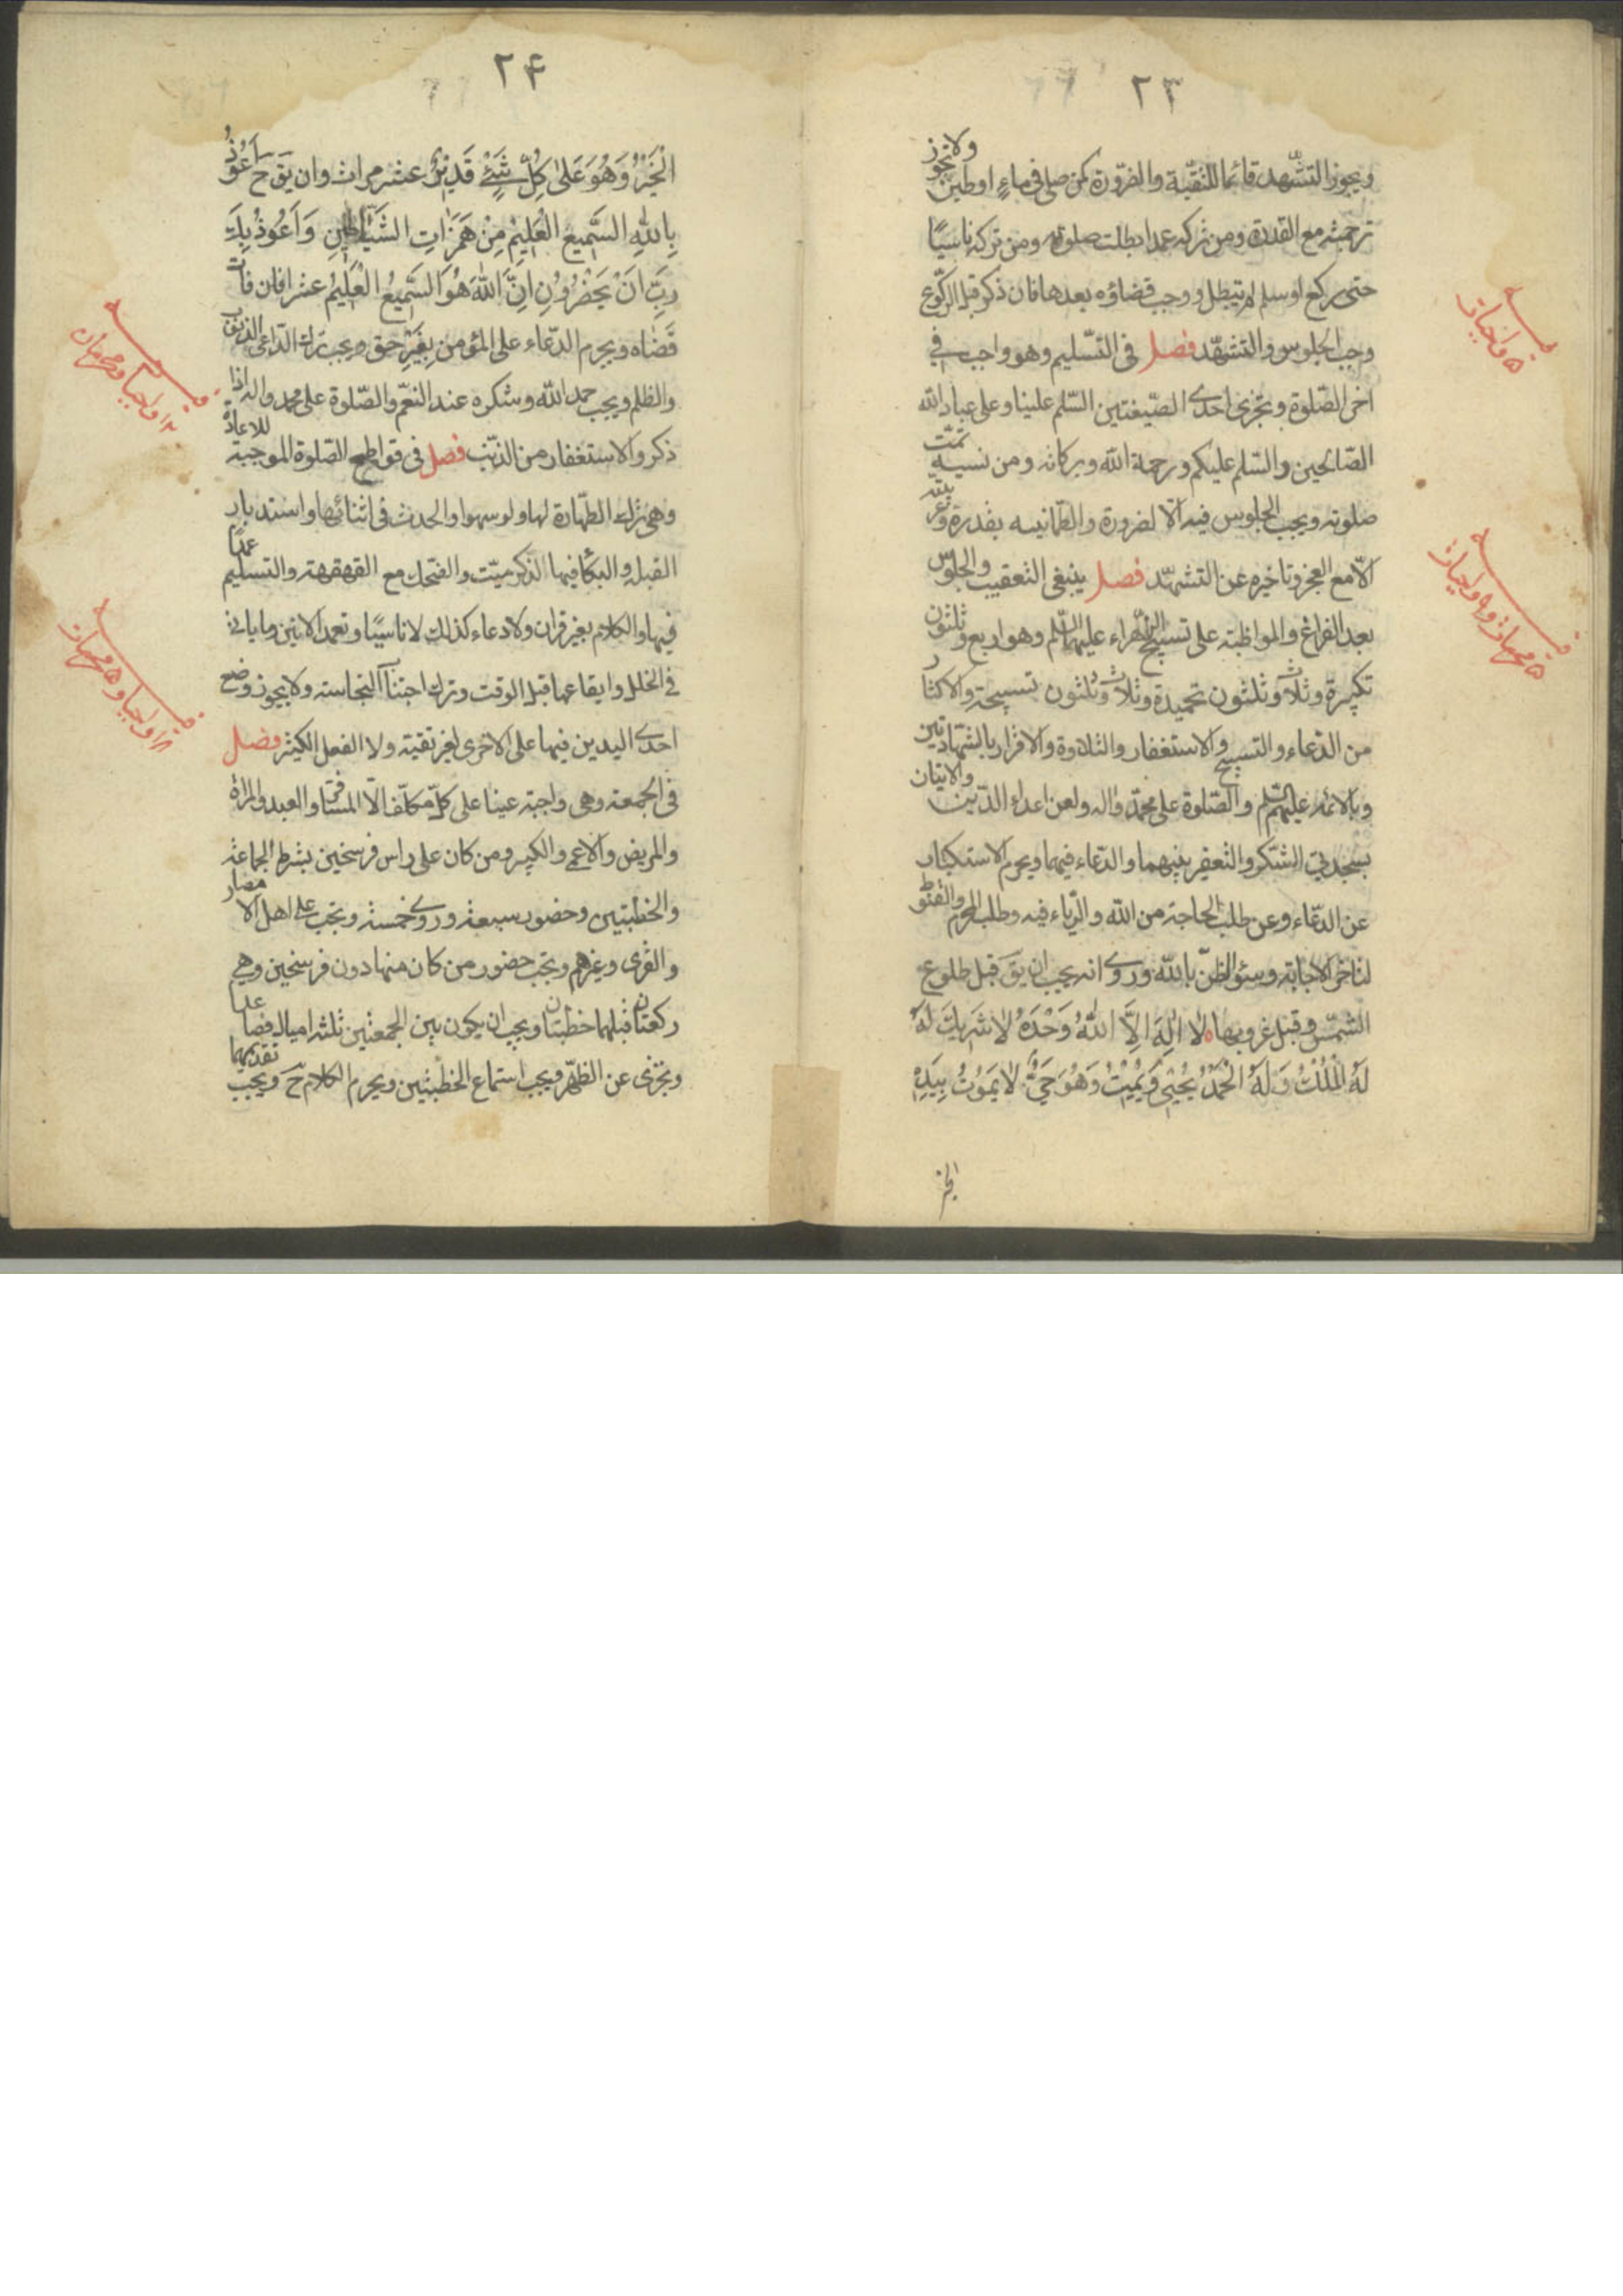 ٢٣
ويجوز التشّهد قائما للتقيّة والضرّورة كمن صلى في ماءٍ او طين ولا تجوز
ترجمته مع القدرة ومن تركه عمدا بطلت صلوته ومن تركه ناسيًا
حتى ركع او سلم لم تبطل ووجب قضاؤه بعدها فان ذكر قبل الركّوع
وجب الجلوس والتشهّد فصل في التسّليم وهو واجب في
اخر الصّلوة وتجزى احدى الصّيغتين السّلم علينا وعلى عباد الله
الصّالحين والسّلم عليكم ورحمة الله وبركاته ومن نسيه تمّت
صلوته ويجب الجلوس فيه الّا لضرورة والطّمانينه بقدره وعربيّته
الّا مع العجز وتاخيره عن التشهّد فصل ينبغى التعقيب والجلوس
بعد الفراغ والمواظبة على تسبيح الزّهراء عليها السّلم وهو اربع وثلثون
تكبيرة وثلاث وثلثون تحميدة وثلاث وثلثون تسبيحة والاكثار
من الدّعاء والتسبيح والاستغفار والتلاوة والاقرار بالشّهادتين
وبالائمّه عليهم السّلم والصّلوة على محمّد واله ولعن اعداء الدّين والاتيان
بسجدتي الشّكر والتعفير بينهما والدّعاء فيهما ويحرم الاستكبار
عن الدّعاء وعن طلب الحاجة من الله والرّياء فيه وطلب المحرم والقنوط
لتاخر الاجابة وسئو الظنّ بالله وروى انه يجب ان يقَ قبل طلوع
الشمّس وقبل غروبها لا اِلٰهَ اِلاَّ اللهُ وَحْدَهُ لا شَرِيكَ لَهُ
لَهُ الْمُلْكُ وَلَهُ الْحَمْدُ يُحْيِي وَيُمِيتُ وَهُوَ حَيٌّ لا يَمُوْتُ بِيَدِهِ
الخير
۵ واجبات
۵ محرمات و٩ واجبات
٢۴
الْخَيْرُ وَهُوَ عَلىٰ كِلِّ شَيْءٍ قَدِيْرٌ عشر مرات وان يقَ ح اَعُوْذُ
بِاللهِ السَّمِيعِ الْعَلِيْمِ مِنْ هَمَزَاتِ الشَّيَاطِينِ وَاَعُوْذُ بِكَ
رَبِّ اَنْ يَحْضُرُوْنِ اِنَّ اللهَ هُوَ السَّمِيعُ الْعَلِيْمُ عشرا فان فات
قَضَاه ويحرم الدعّاء على المؤمن بِغَيْرِ حق ويجب ترك الدّاعى الذنوب
والظلم ويجب حمد الله وشكره عند النعّم والصّلوة على محمد واله اذا
ذكر والاستغفار من الذنّب فصل في قواطع الصّلوة الموجبة للاعادة
وهي ترك الطّهارة لها ولو سهوا والحدث في اثنائها واستدبار
القبلة والبكا فيها لذكر ميّت والضحك مع القهقهة والتسليم عمدًا
فيها والكلام بغير قران ولا دعاء كذلك لا ناسيًا وتعمد الانين وما ياتى
في الخلل وايقاعها قبل الوقت وترك اجتناب النّجاسة ولا يجوز وضع
احدى اليدين فيها على الاخرى لغير تقية ولا الفعل الكثير فصل
في الجمعة وهي واجبة عينا على كلّ مكلّف الّا المسافر والعبد والمراة
والمريض والاعمى والكبير ومن كان على راس فرسخين بشرط الجماعة
والخطبتين وحضور سبعة وروى خمسة وتجب على اهل الامصار
والقرى وغيرهم وتجب حضور من كان منها دون فرسخين وهي
ركعتان قبلهما خطبتان ويجب ان يكون بين الجمعتين ثلثة اميال فصاعدا
وتجزى عن الظهّر ويجب استماع الخطبتين ويحرم الكلام حَ ويجب تقديمهما